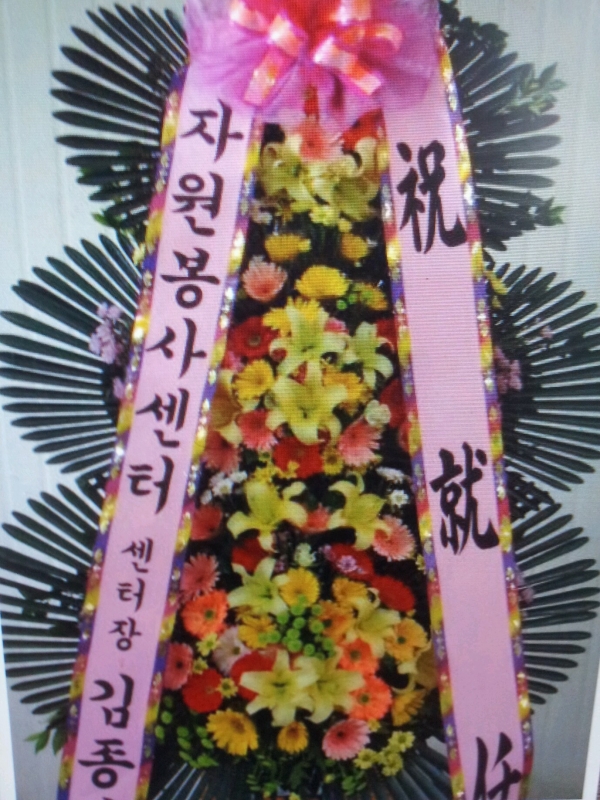 자원봉사센터 센터장 김종
祝就任